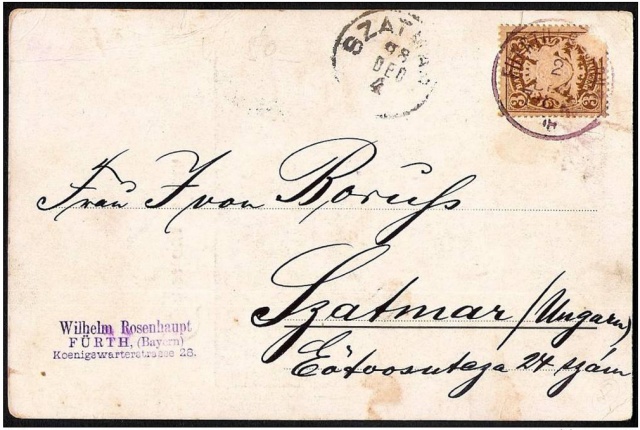 SZATMÁR
98
DEC
4
3 3
2
Frau J von Boruss
Szatmar (Ungarn)
Eötvösutcza 24 szám
Wilhelm Rosenhaupt
FÜRTH, (Bayern)
Koenigswarterstrasse 28.